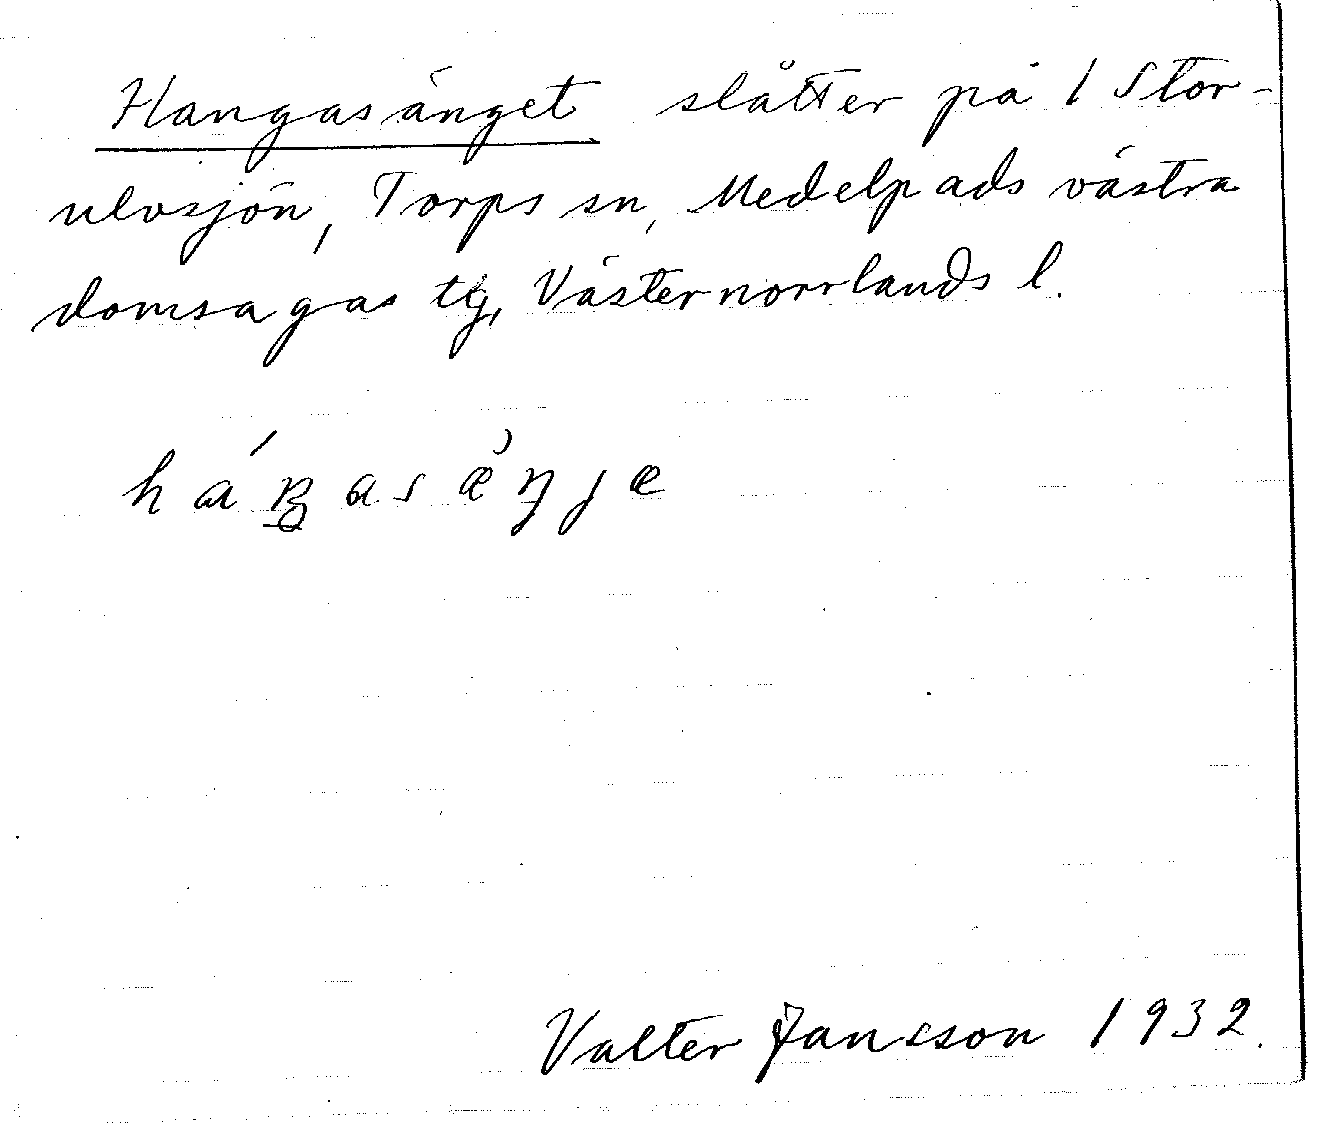 Hangasänget slåtter på 1 Stor-
ulvsjön, Torps sn, Medelpads västra
domsagas tg, Västernorrlands l.
Valter Jansson 1932.